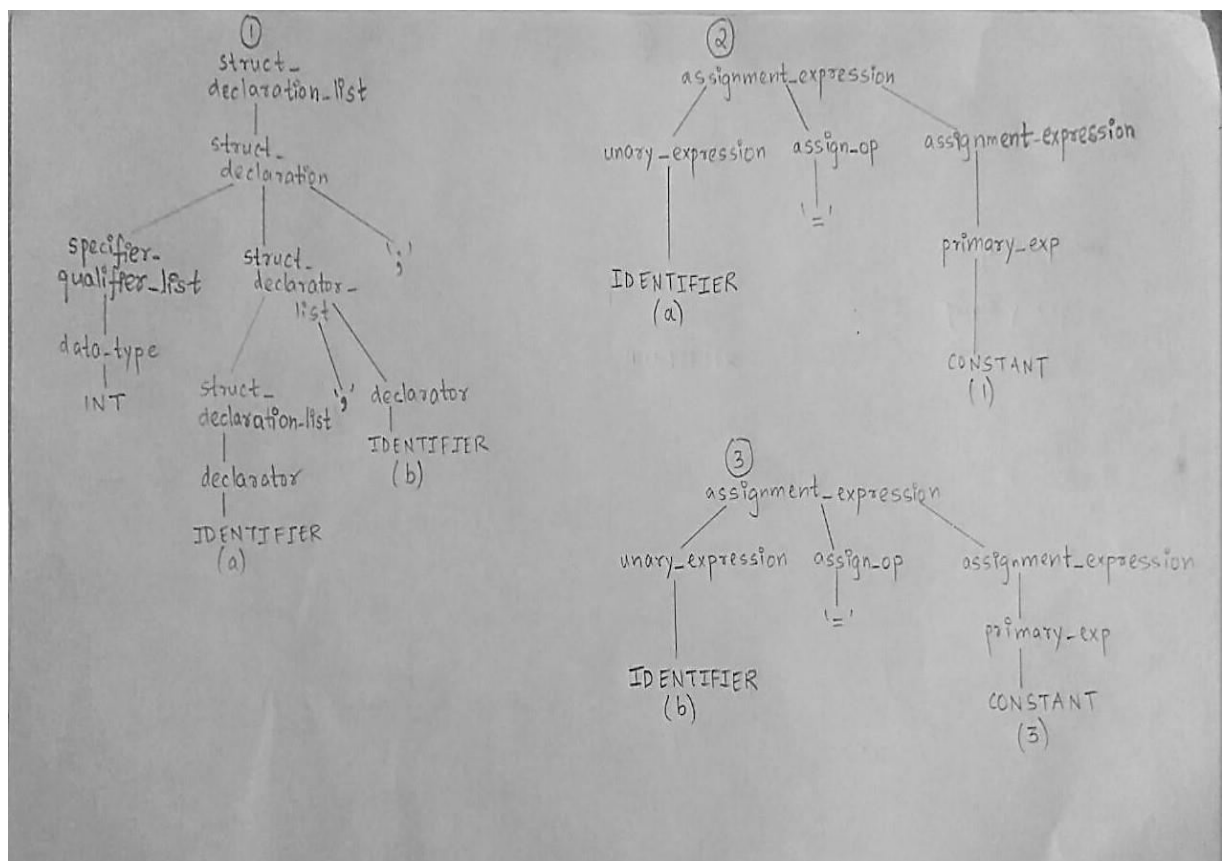 1
struct_
declaration_list
struct_
declaration
specifier_
qualifier_list
struct_
declarator_
list
';'
data_type
INT
struct_
declaration_list
','
declarator
IDENTIFIER
(b)
declarator
IDENTIFIER
(a)
2
assignment_expression
unary_expression assign_op assignment_expression
'='
primary_exp
IDENTIFIER
(a)
CONSTANT
(1)
3
assignment_expression
unary_expression assign_op assignment_expression
'='
primary_exp
IDENTIFIER
(b)
CONSTANT
(3)